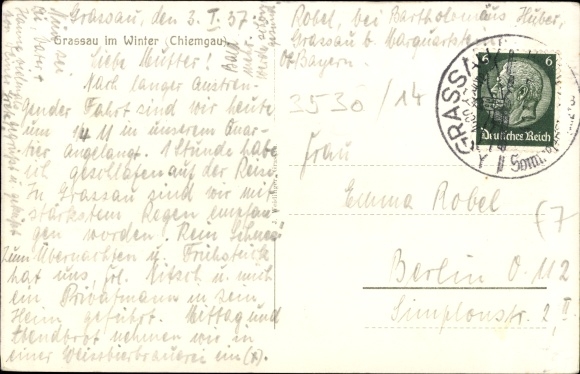 Grassau, den 3. I. 37.
Grassau im Winter (Chiemgau)
Liebe Mutter!
Nach langer anstren-
gender Fahrt sind wir heute
um 14 11 in unserem Quar-
tier angelangt. 1 Stunde habe
ich geschlafen auf der Reise.
In Grassau sind wir mit
stärkstem Regen empfan-
gen worden. Kein Schnee!
Zum Übernachten u. Frühstück
hat uns, Frl. Nitsch u. mich
ein Privatmann in sein
Heim geführt. Mittag und
Abendbrot nehmen wir in
einer Weissbierbrauerei ein
Bald
mehr.
Werde schön
gesund
Robel, bei Bartholomäus Huber,
Grassau b. Marquartstein
Obayern.
3530/14
GRASSAU
6 6
Deutsches Reich
Frau
Emma Robel
Berlin O. 112
Simplonstr. 2, II